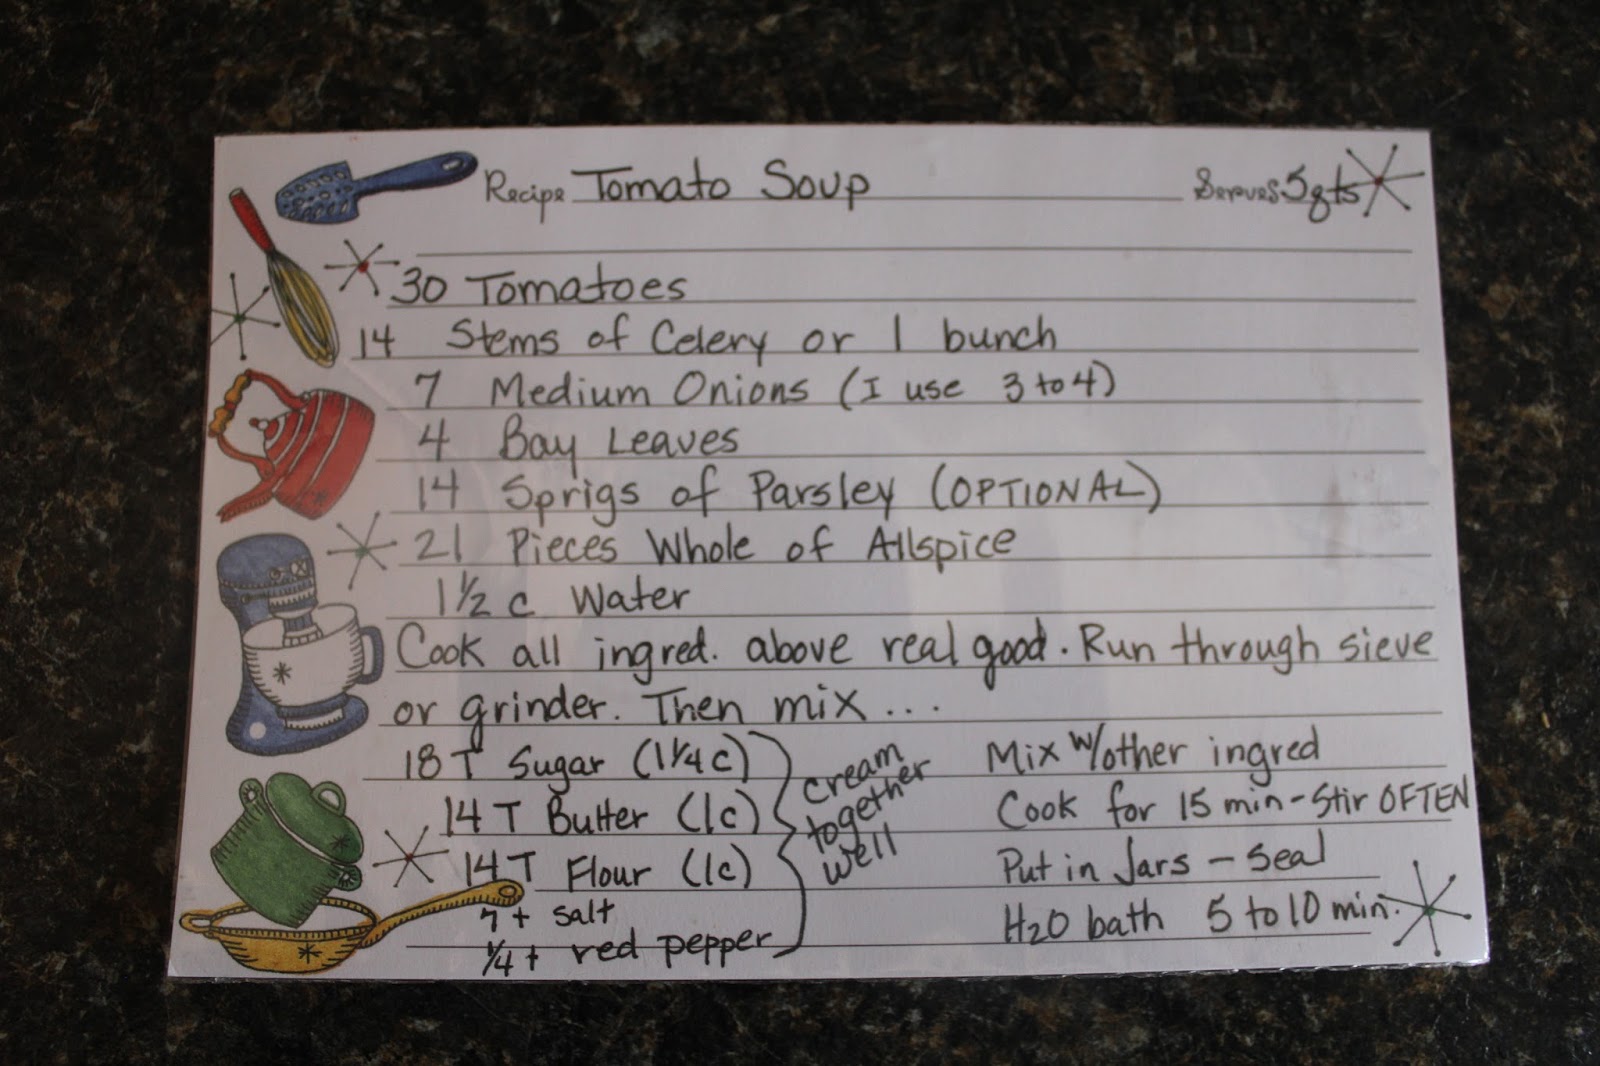 Recipe Tomato Soup Serves 5qts
30 Tomatoes
14 Stems of Celery or 1 bunch
7 Medium Onions (I use 3 to 4)
4 Bay Leaves
14 Sprigs of Parsley (OPTIONAL)
21 Pieces Whole of Allspice
1 1/2 c Water
Cook all ingred. above real good. Run through sieve
or grinder. Then mix...
18 T Sugar (1 1/4 c)
14 T Butter (1c)
14 T Flour (1c)
7 t salt
1/4 t red pepper
cream
together
well
Mix w/other ingred
Cook for 15 min - Stir OFTEN
Put in Jars - Seal
H2O bath 5 to 10 min.